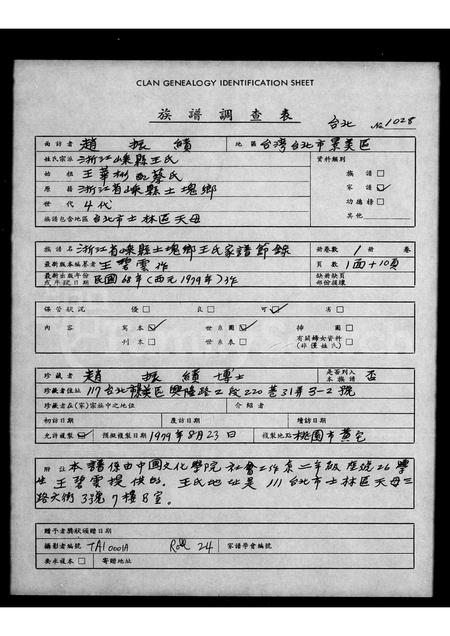 CLAN GENEALOGY IDENTIFICATION SHEET
族譜調查表
台北 No. 1028
面訪者 趙振績 地區 台灣台北市景美區
姓氏宗派 浙江嵊縣王氏 資料類別
始祖 王華彬配蔡氏 族譜 □
原籍 浙江省嵊縣土塊鄉 家譜 ☑
世代 4代 功德榜 □
族譜包含地區 台北市士林區天母 其他
族譜名 浙江省嵊縣土塊鄉王氏家譜節錄 冊卷數 1 冊 卷
最新版本編纂者 王碧雲作 頁數 1面+10頁
最新出版年份或年號日期 民國68年(西元1979年)作 缺冊缺頁部份損壞
保管狀況 優 □ 良 □ 可 ☑ 差 □
內容 寫本 ☑ 世系圖 ☑ 揷圖 □
刊本 □ 世系表 □ 有關婦女資料(非僅姓氏) □
珍藏者 趙振績博士 是否列入本族譜 否
珍藏者住址 117台北市景美區興隆路二段220巷31弄3-2號
珍藏者在(家)宗族中之地位 介紹者
初訪日期 度訪日期 續訪日期
允許複製 ☑ 預擬複製日期 1979年8月23日 複製地點 桃園市黃宅
附註 本譜係由中國文化學院社會工作系二年級座號26學
生王碧雲提供的. 王氏地址是111台北市士林區天母三
路大街33號7樓B室.
贈予者獎狀頒贈日期
攝影者編號 TAI 0001A Roll 24 家譜學會編號
要求複本 □ 寄贈地址